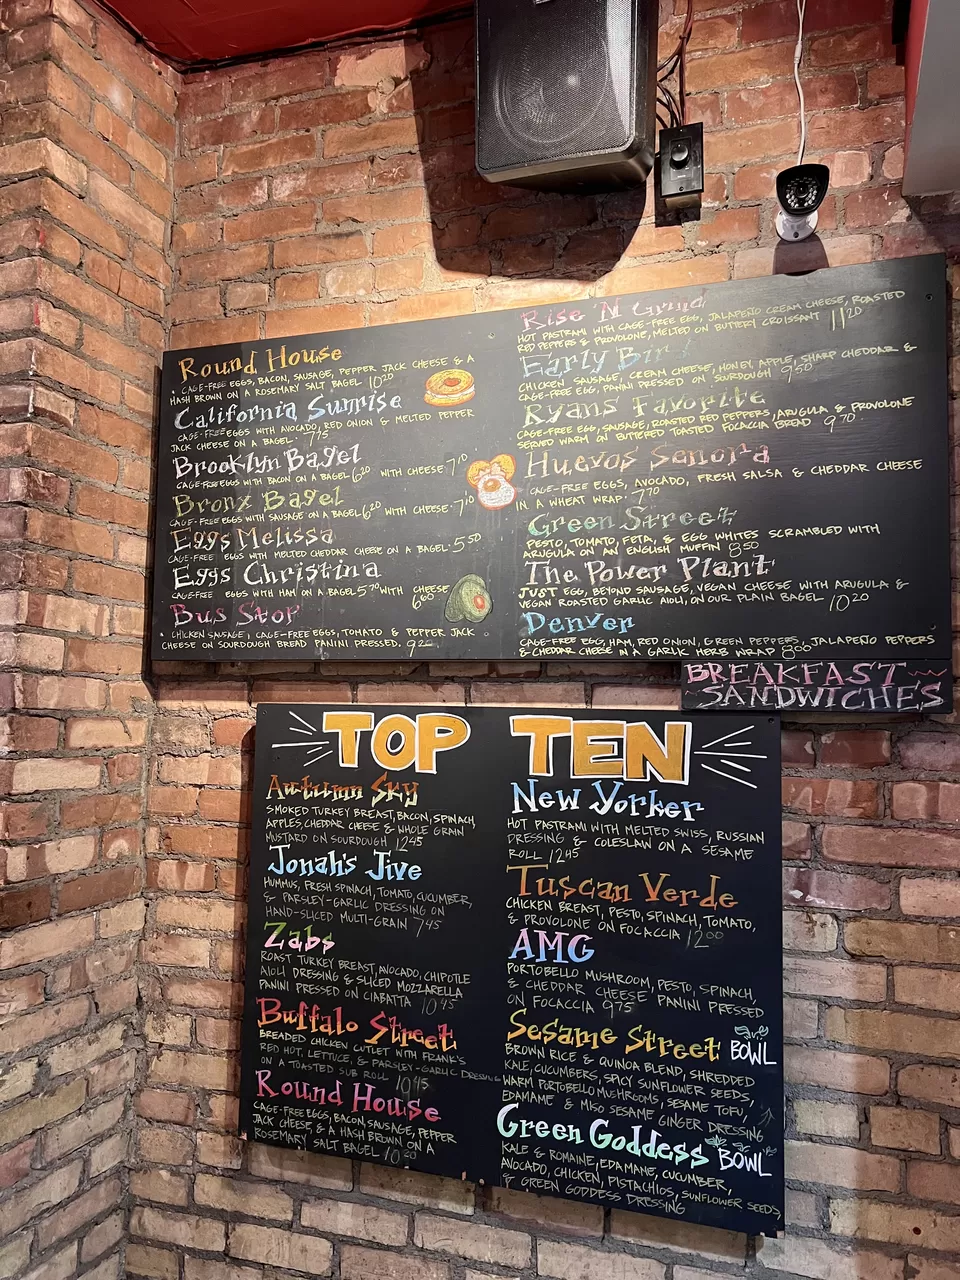 Round House
• CAGE-FREE EGGS, BACON, SAUSAGE, PEPPER JACK CHEESE & A
HASH BROWN ON A ROSEMARY SALT BAGEL 10 20
California Sunrise
CAGE-FREE EGGS WITH AVOCADO, RED ONION & MELTED PEPPER
JACK CHEESE ON A BAGEL. 7 75
Brooklyn Bagel
CAGE-FREE EGGS WITH BACON ON A BAGEL 6 20 WITH CHEESE 7 10
Bronx Bagel
CAGE-FREE EGGS WITH SAUSAGE ON A BAGEL 6 20 WITH CHEESE 7 10
Eggs Melissa
CAGE-FREE EGGS WITH MELTED CHEDDAR CHEESE ON A BAGEL 5 50
Eggs Christina
CAGE-FREE EGGS WITH HAM ON A BAGEL 5 70 WITH CHEESE
6 60
Bus Stop
• CHICKEN SAUSAGE, CAGE-FREE EGGS, TOMATO & PEPPER JACK
CHEESE ON SOURDOUGH BREAD PANINI PRESSED. 9 20
Rise 'N Grind
HOT PASTRAMI WITH CAGE-FREE EGG, JALAPEÑO CREAM CHEESE, ROASTED
RED PEPPERS & PROVOLONE, MELTED ON BUTTERY CROISSANT 11 20
Early Bird
CHICKEN SAUSAGE, CREAM CHEESE, HONEY, APPLE, SHARP CHEDDAR &
CAGE-FREE EGG, PANINI PRESSED ON SOURDOUGH 9 50
Ryans Favorite
CAGE-FREE EGG, SAUSAGE, ROASTED RED PEPPERS, ARUGULA & PROVOLONE
SERVED WARM ON BUTTERED TOASTED FOCACCIA BREAD 9 70
Huevos Senora
CAGE-FREE EGGS, AVOCADO, FRESH SALSA & CHEDDAR CHEESE
IN A WHEAT WRAP. 7 70
Green Street
PESTO, TOMATO, FETA, & EGG WHITES SCRAMBLED WITH
ARUGULA ON AN ENGLISH MUFFIN 8 50
The Power Plant
JUST EGG, BEYOND SAUSAGE, VEGAN CHEESE WITH ARUGULA &
VEGAN ROASTED GARLIC AIOLI, ON OUR PLAIN BAGEL 10 20
Denver
CAGE-FREE EGG, HAM, RED ONION, GREEN PEPPERS, JALAPEÑO PEPPERS
& CHEDDAR CHEESE IN A GARLIC HERB WRAP 8 00
BREAKFAST
SANDWICHES
TOP TEN
Autumn Sky
SMOKED TURKEY BREAST, BACON, SPINACH,
APPLES, CHEDDAR CHEESE & WHOLE GRAIN
MUSTARD ON SOURDOUGH 12 45
Jonah's Jive
HUMMUS, FRESH SPINACH, TOMATO, CUCUMBER,
& PARSLEY-GARLIC DRESSING ON
HAND-SLICED MULTI-GRAIN 7 45
Zabs
ROAST TURKEY BREAST, AVOCADO, CHIPOTLE
AIOLI DRESSING & SLICED MOZZARELLA
PANINI PRESSED ON CIABATTA 10 45
Buffalo Street
BREADED CHICKEN CUTLET WITH FRANK'S
RED HOT, LETTUCE, & PARSLEY-GARLIC DRESSING
ON A TOASTED SUB ROLL 10 45
Round House
CAGE-FREE EGGS, BACON, SAUSAGE, PEPPER
JACK CHEESE, & A HASH BROWN ON A
ROSEMARY SALT BAGEL 10 20
New Yorker
HOT PASTRAMI WITH MELTED SWISS, RUSSIAN
DRESSING & COLESLAW ON A SESAME
ROLL 12 45
Tuscan Verde
CHICKEN BREAST, PESTO, SPINACH, TOMATO,
& PROVOLONE ON FOCACCIA 12 00
AMG
PORTOBELLO MUSHROOM, PESTO, SPINACH,
& CHEDDAR CHEESE PANINI PRESSED
ON FOCACCIA 9 75
Sesame Street BOWL
BROWN RICE & QUINOA BLEND, SHREDDED
KALE, CUCUMBERS, SPICY SUNFLOWER SEEDS,
WARM PORTOBELLO MUSHROOMS, SESAME TOFU,
EDAMAME & MISO SESAME GINGER DRESSING
Green Goddess BOWL
KALE & ROMAINE, EDAMAME, CUCUMBER,
AVOCADO, CHICKEN, PISTACHIOS, SUNFLOWER SEEDS,
& GREEN GODDESS DRESSING